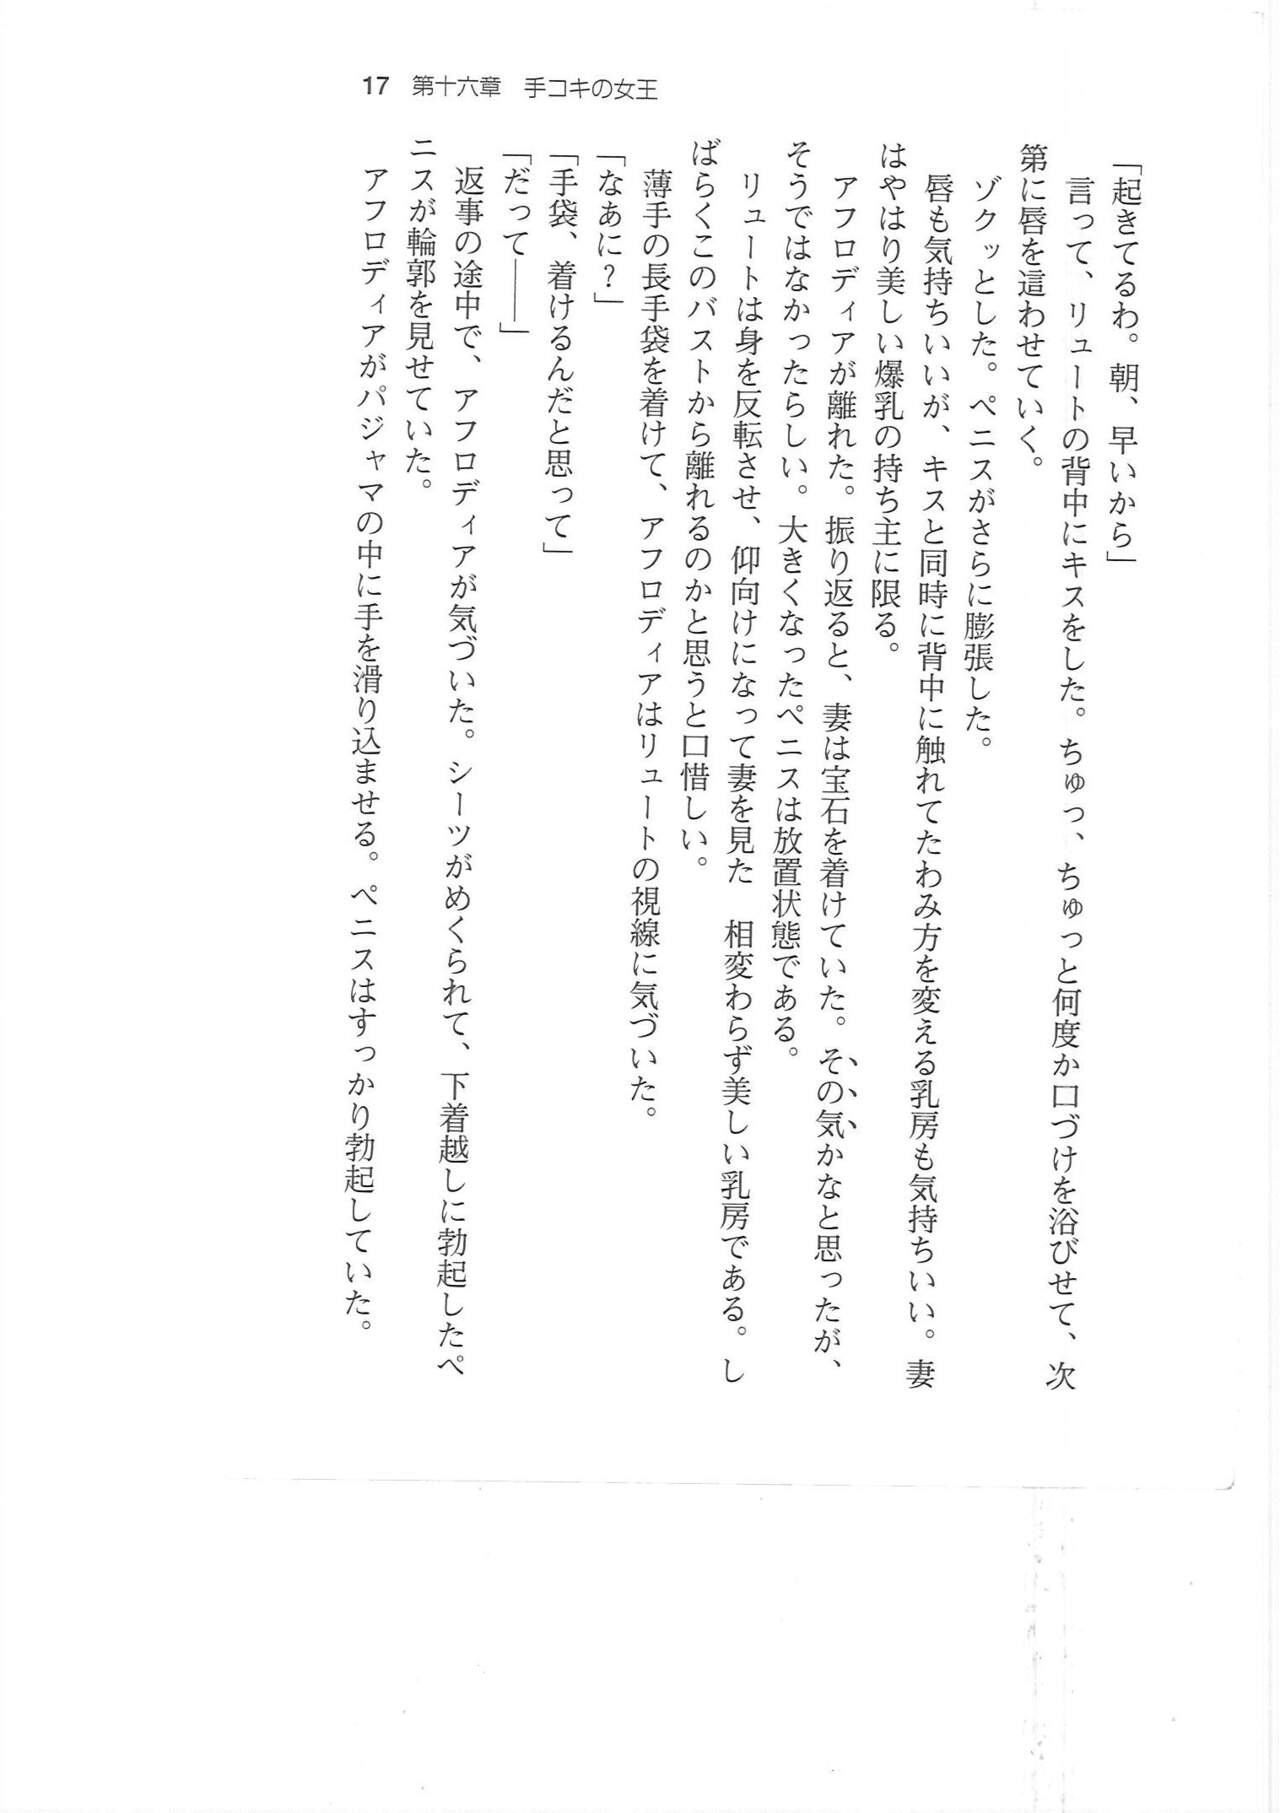 17　第十六章　手コキの女王
「起きてるわ。朝、早いから」
　言って、リュートの背中にキスをした。ちゅっ、ちゅっと何度か口づけを浴びせて、次
第に唇を這わせていく。
　ゾクッとした。ペニスがさらに膨張した。
　唇も気持ちいいが、キスと同時に背中に触れてたわみ方を変える乳房も気持ちいい。妻
はやはり美しい爆乳の持ち主に限る。
　アフロディアが離れた。振り返ると、妻は宝石を着けていた。その気かなと思ったが、
そうではなかったらしい。大きくなったペニスは放置状態である。
　リュートは身を反転させ、仰向けになって妻を見た　相変わらず美しい乳房である。し
ばらくこのバストから離れるのかと思うと口惜しい。
　薄手の長手袋を着けて、アフロディアはリュートの視線に気づいた。
「なあに？」
「手袋、着けるんだと思って」
「だって――」
　返事の途中で、アフロディアが気づいた。シーツがめくられて、下着越しに勃起したペ
ニスが輪郭を見せていた。
　アフロディアがパジャマの中に手を滑り込ませる。ペニスはすっかり勃起していた。